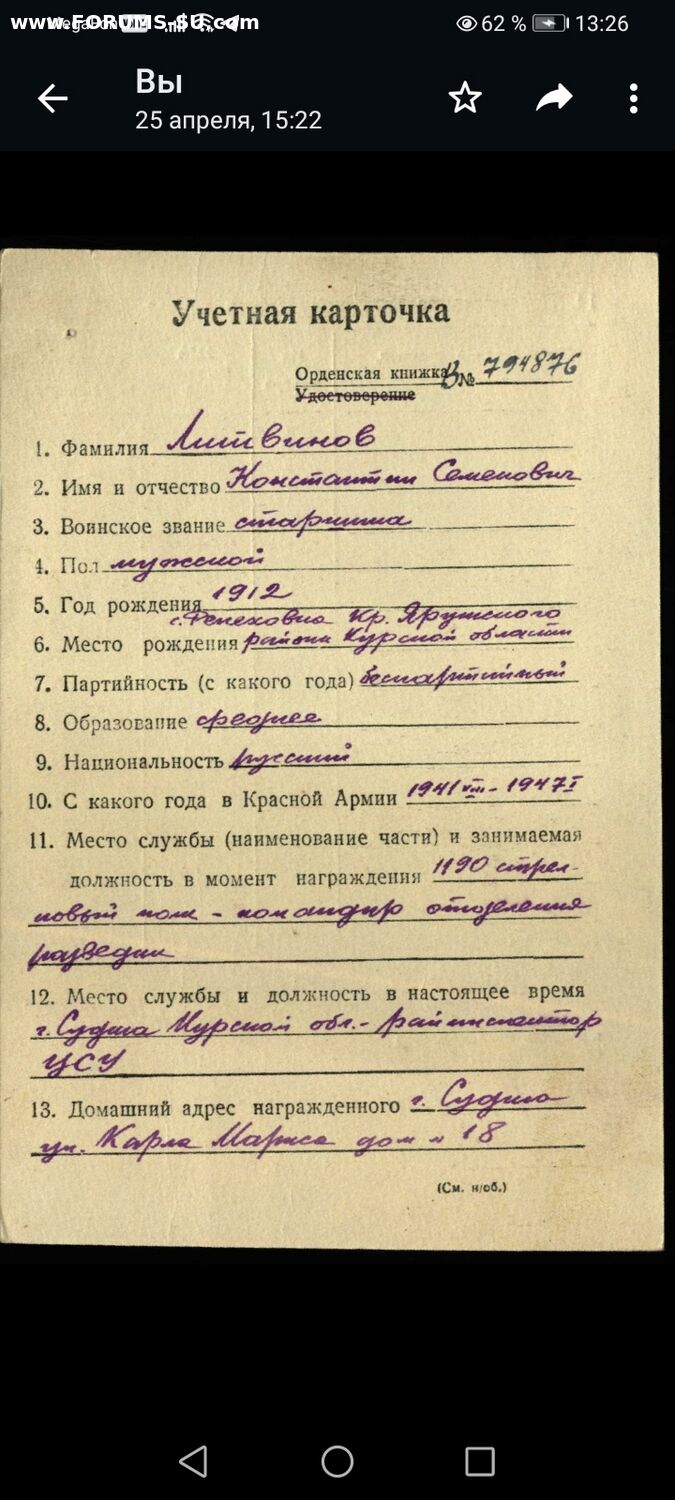 www.FORUMS-SU.com
62 % 13:26
Вы
25 апреля, 15:22
Учетная карточка
Орденская книжка В № 794876
Удостоверение
1. Фамилия Литвинов
2. Имя и отчество Константин Семенович
3. Воинское звание старшина
4. Пол мужской
5. Год рождения 1912
с. Кр. Яружского
6. Место рождения района Курской области
7. Партийность (с какого года) беспартийный
8. Образование среднее
9. Национальность русский
10. С какого года в Красной Армии 1941 VIII - 1947 I
11. Место службы (наименование части) и занимаемая
должность в момент награждения 1190 стрел-
ковый полк - командир отделения
разведки
12. Место службы и должность в настоящее время
г. Суджа Курской обл. - райинспектор
ЦСУ
13. Домашний адрес награжденного г. Суджа
ул. Карла Маркса дом № 18
(См. н/об.)